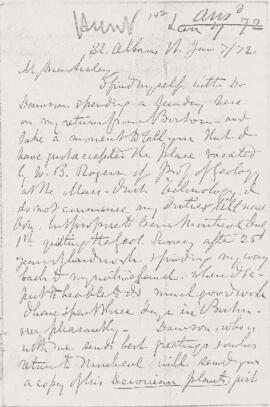 Hunt 142 Ansd
Jan 11/72
St. Albans Vt. Jan 7/72.
My dear Lesley
I find myself, with Dr
Dawson spending a Sunday here
on my return from Boston - and
take a moment to tell you that I
have just accepted the place vacated
by W. B. Rogers, of Prof of Geology
at the Mass. Inst. Technology. I
do not commence my duties till next
but propose to leave Montreal
1st quitting the Geol. Survey after 25
years of hard work & finding my way
back to my native land, where I
to be able to do much good work
I have spent three days in Boston
very pleasantly - Dawson, who is
with me sends best greetings & on his
return to Montreal will send you
a copy of his Devonian plants, just